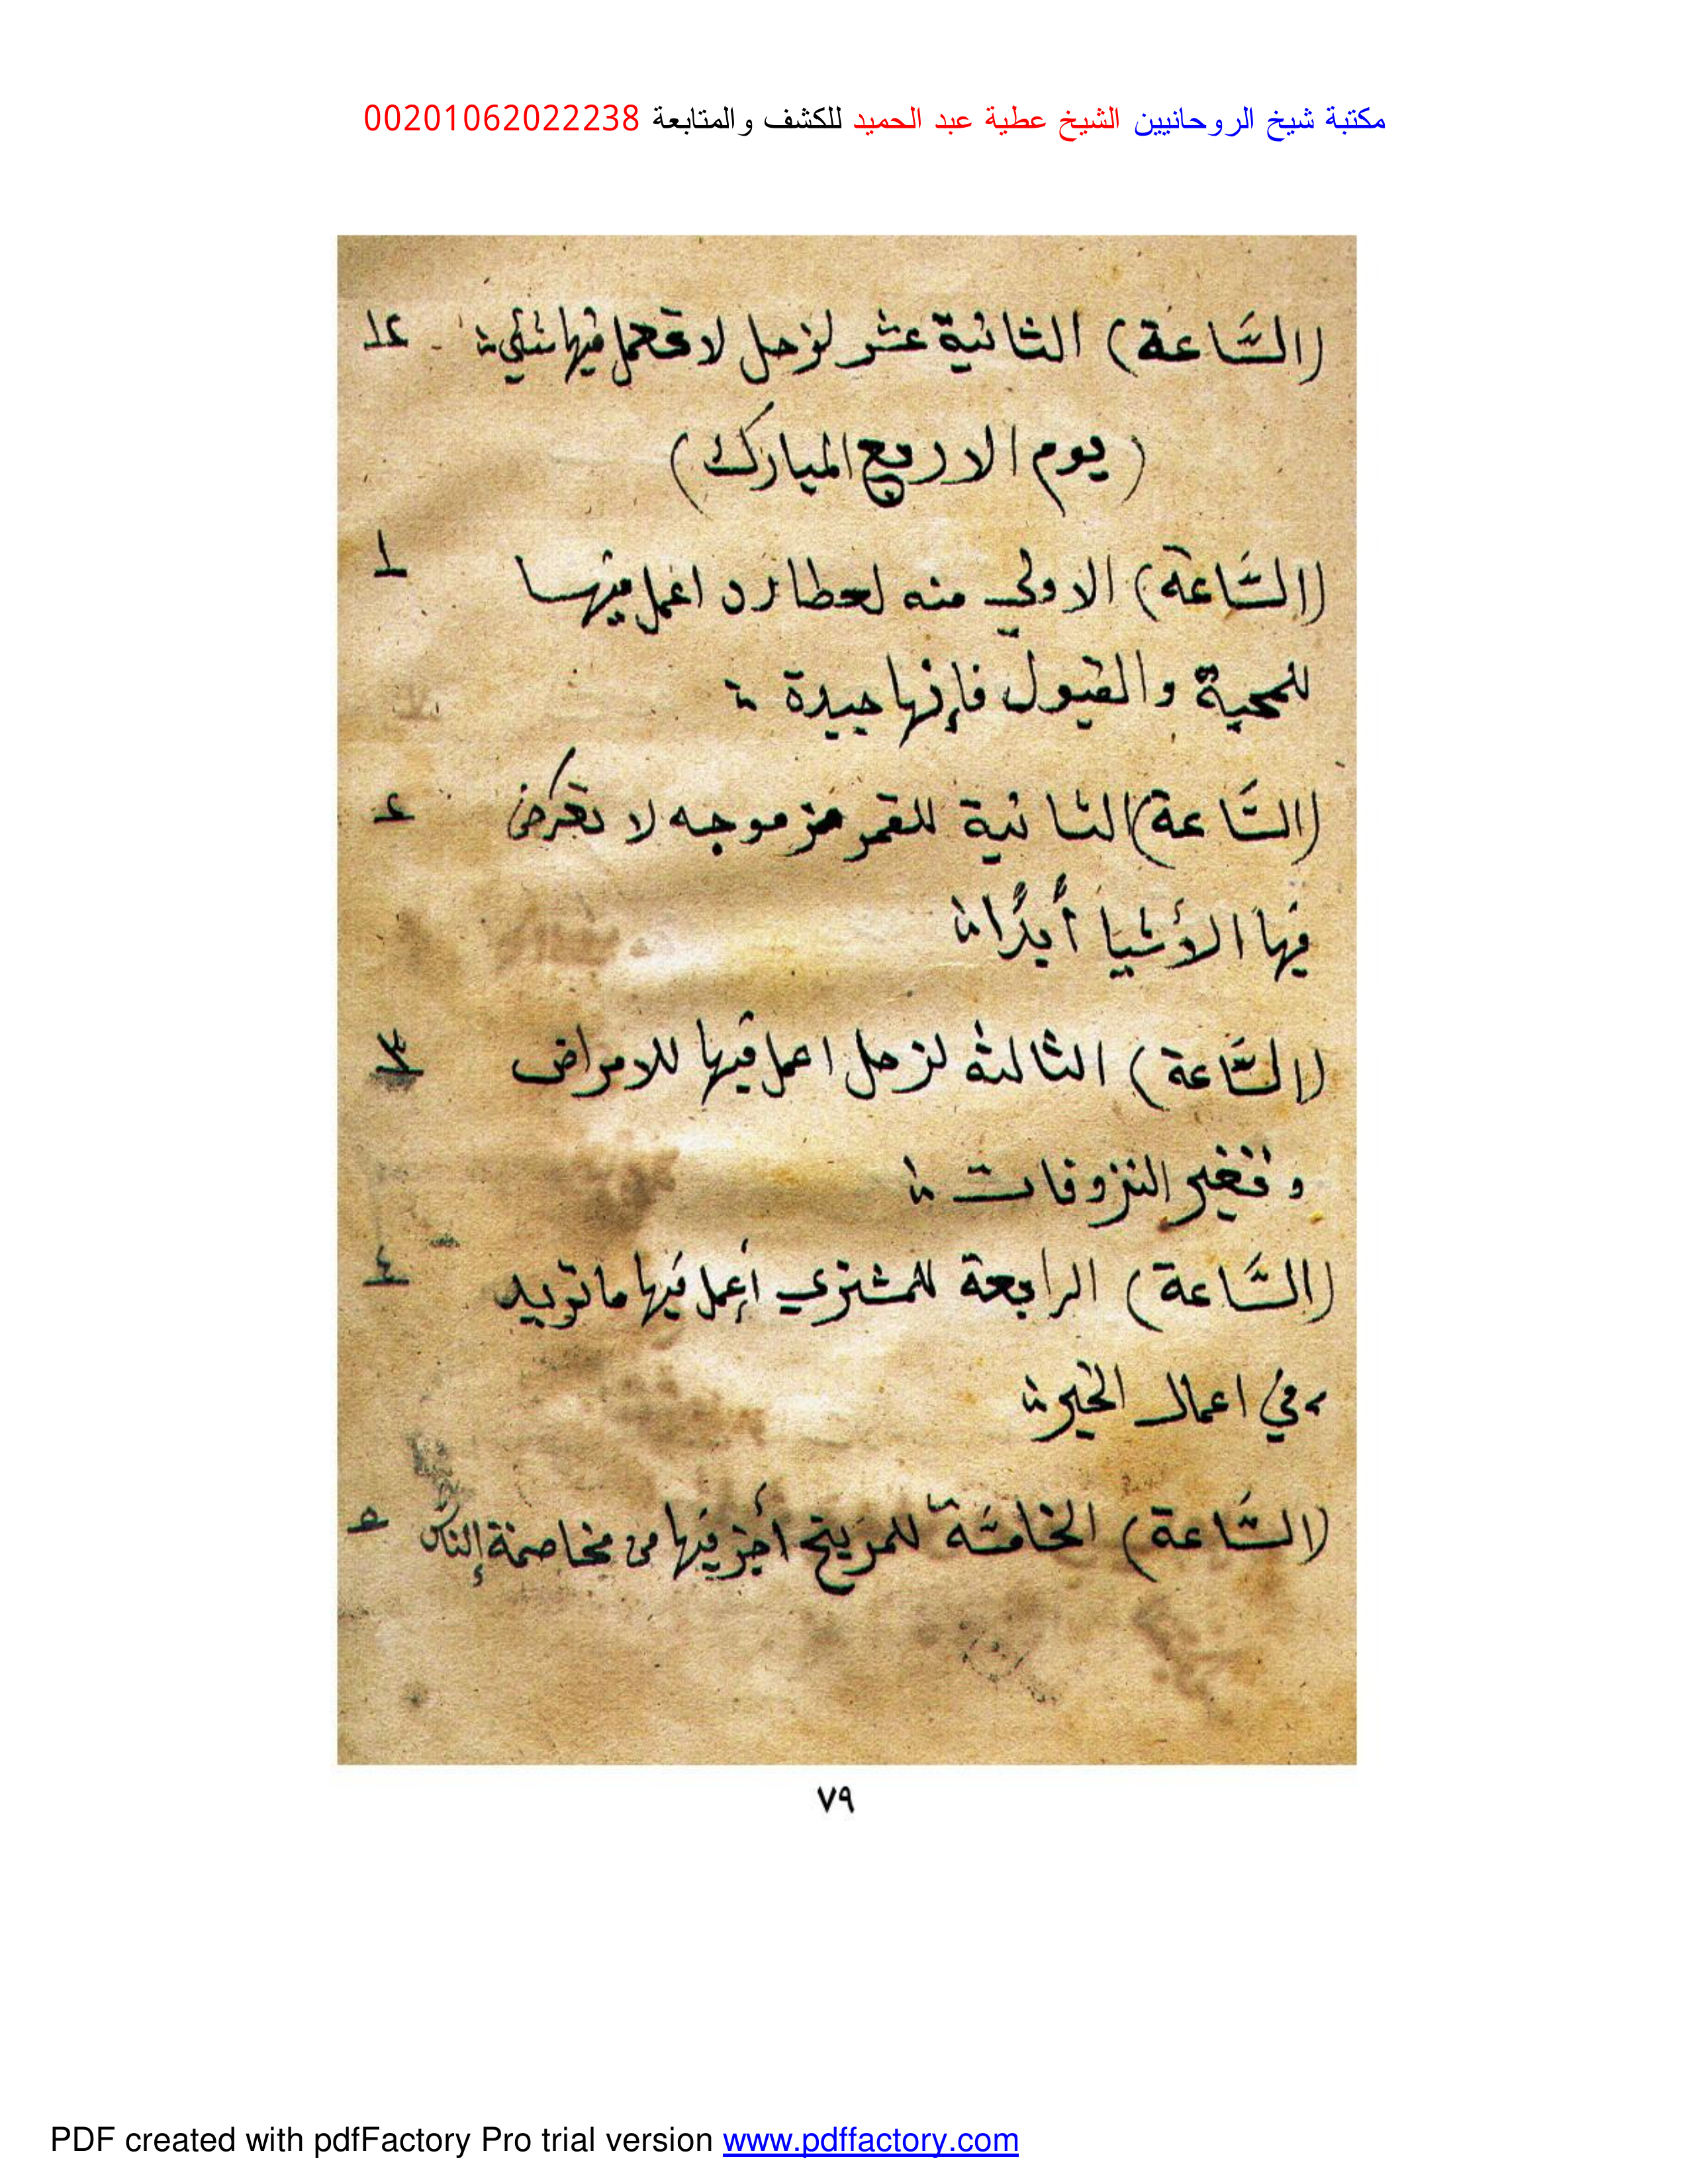 مكتبة شيخ الروحانيين الشيخ عطية عبد الحميد للكشف والمتابعة 00201062022238
(الساعة) الثانية عشر لزحل لا تعمل فيها شئ ١٢
(يوم الاربع المبارك)
(السَّاعة) الاولي منه لعطارد اعمل فيها ١
للمحبة والقبول فإنها جيدة
(السَّاعة) الثانية للقمر موجه لا تعرض ٢
فيها الأشيا أبدًا
(السَّاعة) الثالثة لزحل اعمل فيها للامراض ٣
وتغير النزوفات
(السَّاعة) الرابعة للمشتري أعمل فيها ما تريد ٤
في اعمال الخير
(السَّاعة) الخامسَة للمريخ فيها من مخاصمة الناس ٥
٧٩
PDF created with pdfFactory Pro trial version www.pdffactory.com